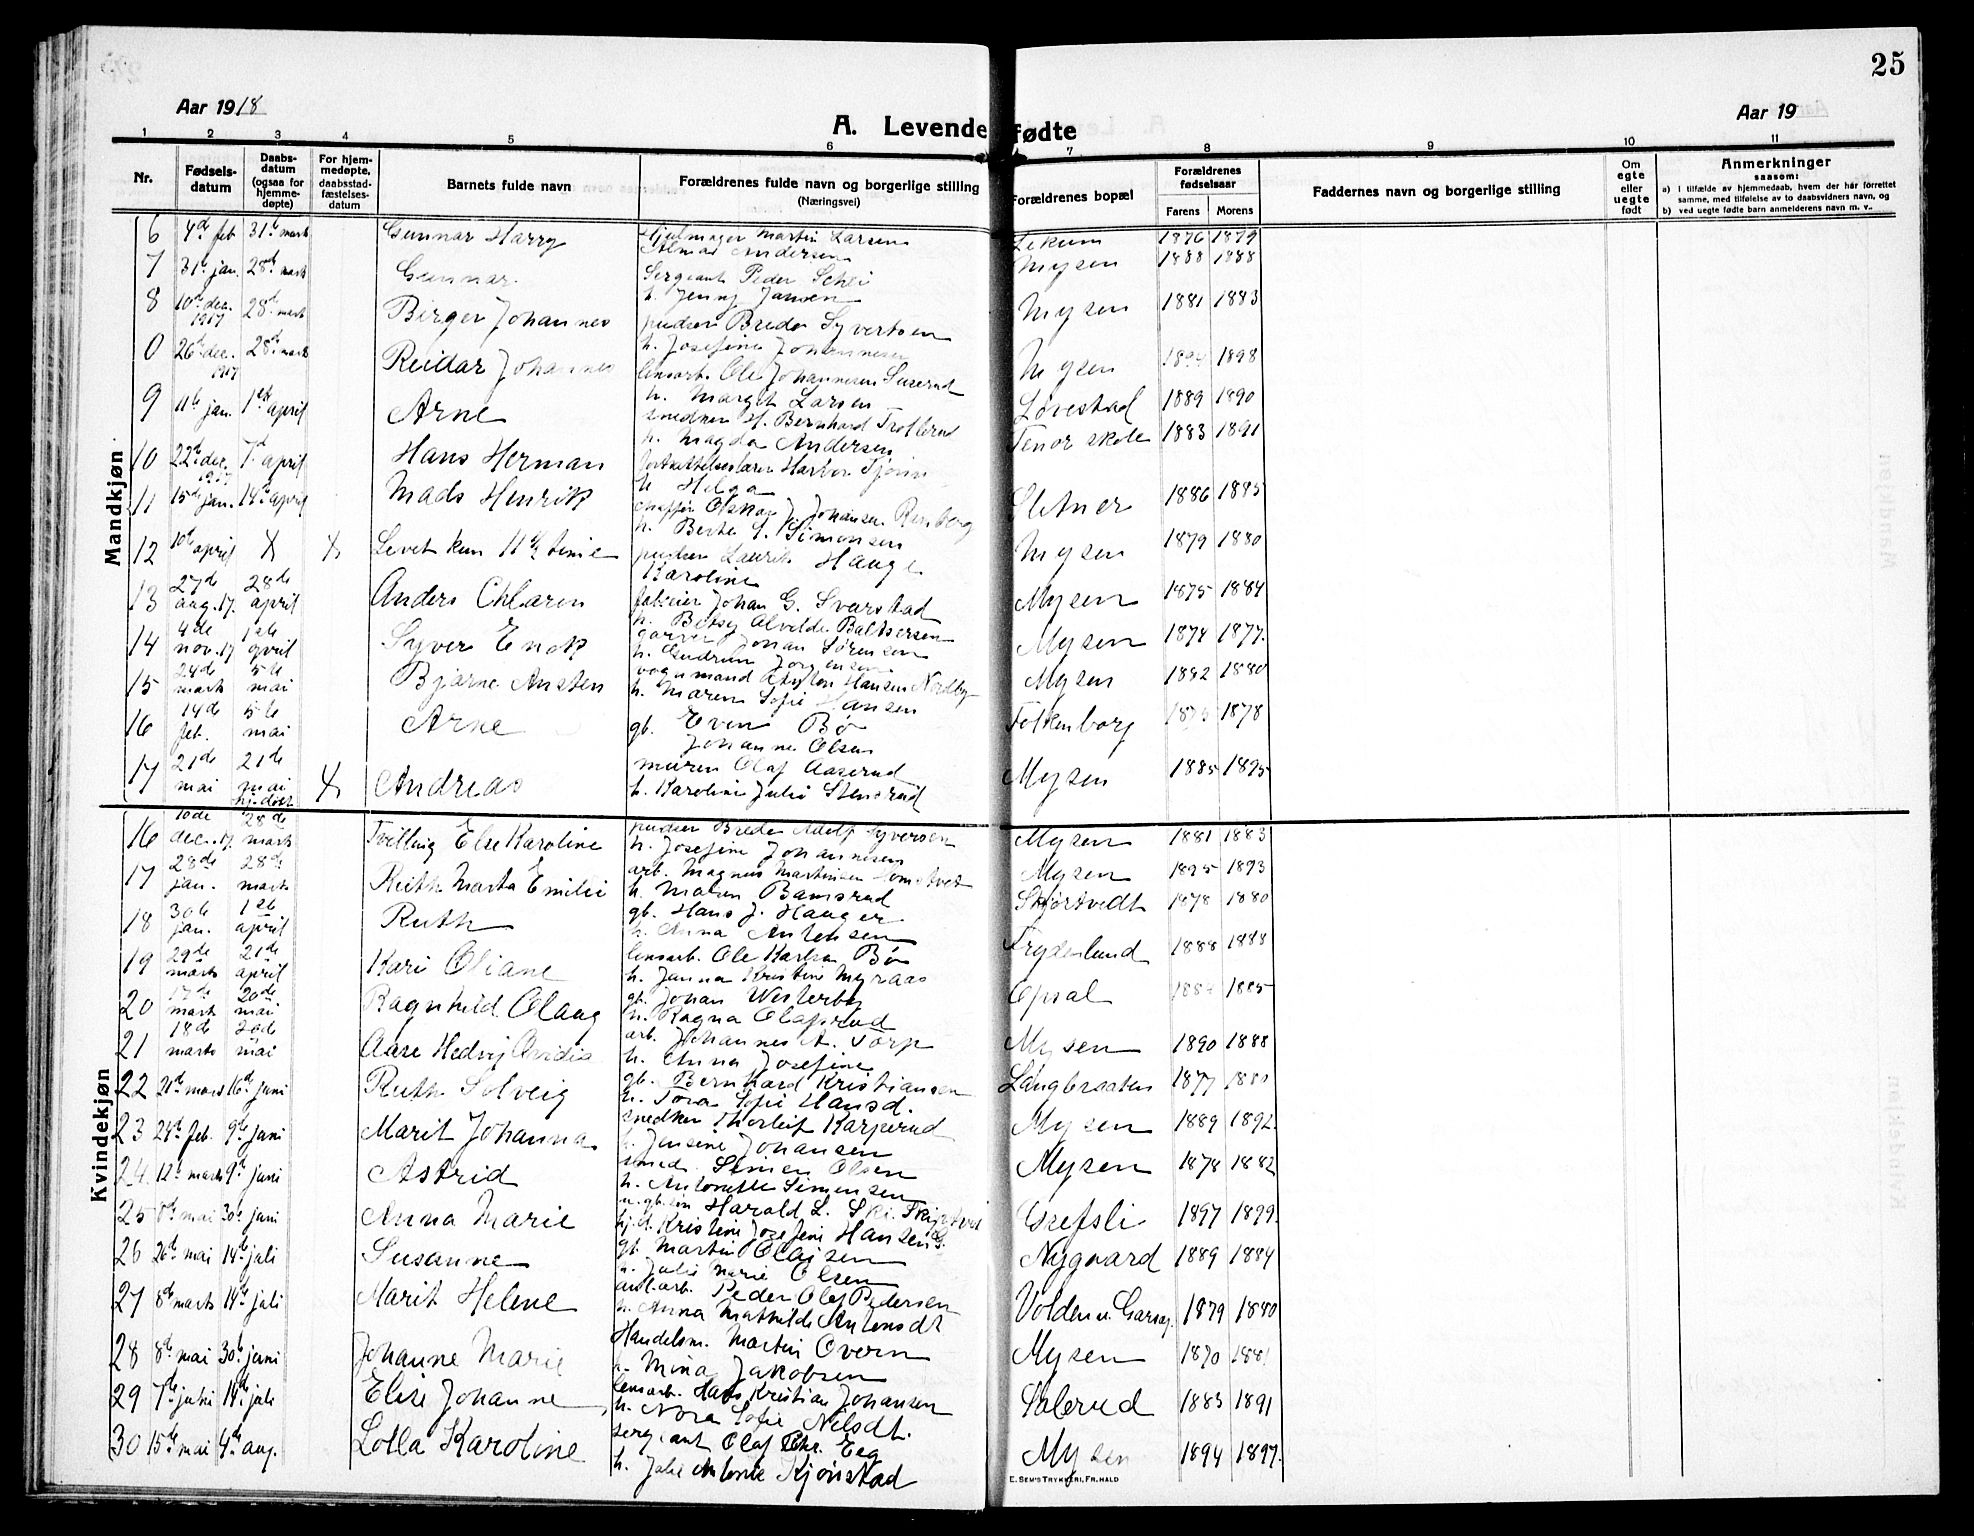 25
Aar 1918
Aar 19
A. Levende fødte
1 2 3 4 5 6 7 8 9 10 11
Nr.
Fødsels-
datum
Daabs-
datum
(ogsaa for
hjemme-
døpte)
For hjem-
medøpte,
daabsstad-
fæstelses-
datum
Barnets fulde navn
Forældrenes fulde navn og borgerlige stilling
(Næringsvei)
Forældrenes bopæl
Forældrenes
fødselsaar
Farens Morens
Faddernes navn og borgerlige stilling
Om
egte
eller
uegte
født
Anmerkninger
saasom:
a) i tilfælde av hjemmedaab, hvem der har forrettet
samme, med tilføielse av to daabsvidners navn, og
b) ved uegte fødte barn anmelderens navn m. v.
Mandkjøn
6 4de feb 31te mars Gunnar Harry Martin Larsen Lekum 1876 1879
Almar Andersen
7 31te jan. 28de mars Gunnar Sergeant Peder Schei Mysen 1888 1888
h. Jenny Jansen
8 10de dec. 1917 28de mars Birger Johannes pudser Breder Syvertsen Mysen 1881 1883
h. Josefine Johannesen
0 26de dec. 1917 28de mars Reidar Johannes Ole Johannesen Mysen 1898
h. Margit Larsen
9 11te jan. 1ste april Arne snedker H. Bernhard Trollerud Løvestad 1889 1890
h. Magda Andersen
10 22de dec. 1917 7de april Hans Herman Tenor skole 1883 1891
h. Helga
11 15de jan. 14de april Mads Henrik Johansen Ramberg Sletner 1886 1885
h. Berte S. Simonsen
12 10de april X X Levet kun 11 1/2 time pudser Laurits Hauge Mysen 1879 1880
Karoline
13 27de aug. 17. 28de april Anders Chlaren Johan G. Svarstad Mysen 1875 1884
h. Betsy Alvilde Baltsersen
14 4de nov. 17 1ste april Syver Enok garver Johan Sørensen Mysen 1874 1877.
h. Gudrun Jørgensen
15 24de marts 5te mai Bjarne Austen vognmand Anton Hansen Nordby Mysen 1882 1880
h. Maren Sofie Hansen
16 14de feb. 5te mai Arne gb. Even Bø Folkenborg 1878
Johanne Olsen
17 21de mai 21de mai hj.døbt X Andreas murer Olaf Aaserud Mysen 1885 1895
h. Karoline Julie Stensrud
Kvindekjøn
16 10de dec. 17. 28de marts Tvilling Else Karoline pudser Breder Adolf Syversen Mysen 1881 1883
h. Josefine Johannesen
17 28de jan. 28de marts Ruth Marta Emilie arb. Magnus Martinsen Mysen 1895 1893
h. Maren Bamsrud
18 30te jan. 1ste april Ruth gb. Hans J. Haager Skjørtvedt 1878 1880
h. Anna Antensen
19 29de marts 21de april Kari Oliane Ole Karlsen Bø Frydenlund 1888 1888
h. Janna Kristine Myraas
20 17de marts 20de mai Ragnhild Olaug gb. Johan Westerby Opsal 1885
h. Ragna Olafsrud
21 18de marts 20de mai Aase Hedvig Ovidia arb. Johannes A. Torp Mysen 1890 1888
h. Anna Josefine
22 21de mars 16de juni Ruth Solveig gb. Bernhard Kristiansen Langbraaten 1877
h. Tora Sofie Hansd.
23 24de feb. 9de juni Marit Johanna snedker Thorleif Karperud Mysen 1889 1892.
h. Jensine Johansen
24. 12te marts 9de juni Astrid smed Simen Olsen Mysen 1878 1882
h. Antonette Simensen
25 8de mai 30te juni Anna Marie Harald L. Ski Grefsli 1897 1899.
hj.d. Kristine Josefine Hansen
26 26de mai 14de juli Susanne gb. Martin Olaisen Nygaard 1889 1884
h. Julie Marie Olsen
27 8de marts 14de juli Marit Helene Peder Olaf Pedersen Volden u. 1879 1880
h. Anna Mathilde Antonsdt
28 8de mai 30te juni Johanne Marie Handelsm. Martin Overn Mysen 1870 1881
h. Mina Jakobsen
29 7de juni 14de juli Elise Johanne Hans Kristian Johansen Salerud 1883 1891
h. Nora Sofie Nilsdt.
30 15de mai 4de aug. Lolla Karoline sergeant Olaf Chr. Eeg Mysen 1894 1897.
h. Julie Antonie Kjønstad
E. SEM'S TRYKKERI, FR.HALD